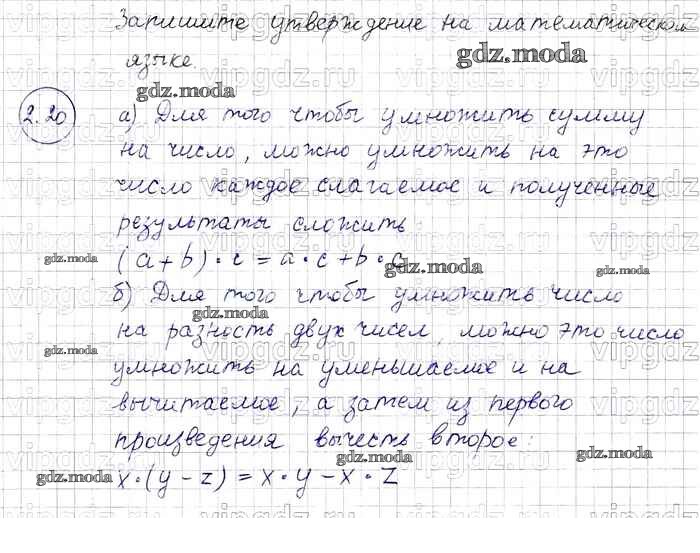 Запишите утверждение на математическом
языке.
2.20
а) Для того чтобы умножить сумму
на число, можно умножить на это
число каждое слагаемое и полученные
результаты сложить
(a+b)·c=a·c+b·c
б) Для того чтобы умножить число
на разность двух чисел, можно это число
умножить на уменьшаемое и на
вычитаемое, а затем из первого
произведения вычесть второе:
x·(y-z)=x·y-x·z
gdz.moda
gdz.moda
gdz.moda
gdz.moda
gdz.moda
gdz.moda
gdz.moda
gdz.moda
gdz.moda
gdz.moda